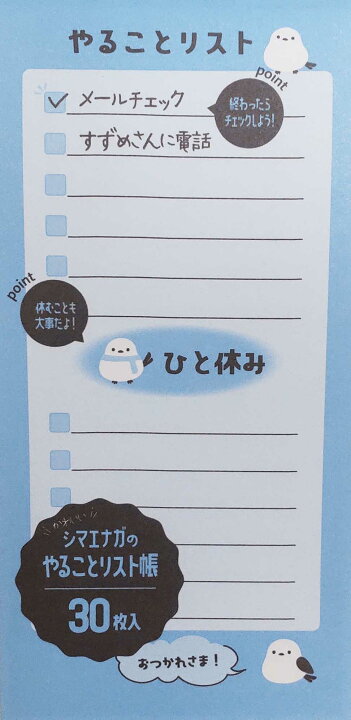 やることリスト
point
メールチェック
終わったら
チェックしよう!
すずめさんに電話
point
休むことも
大事だよ!
ひと休み
かわいい
シマエナガの
やることリスト帳
30枚入
おつかれさま!